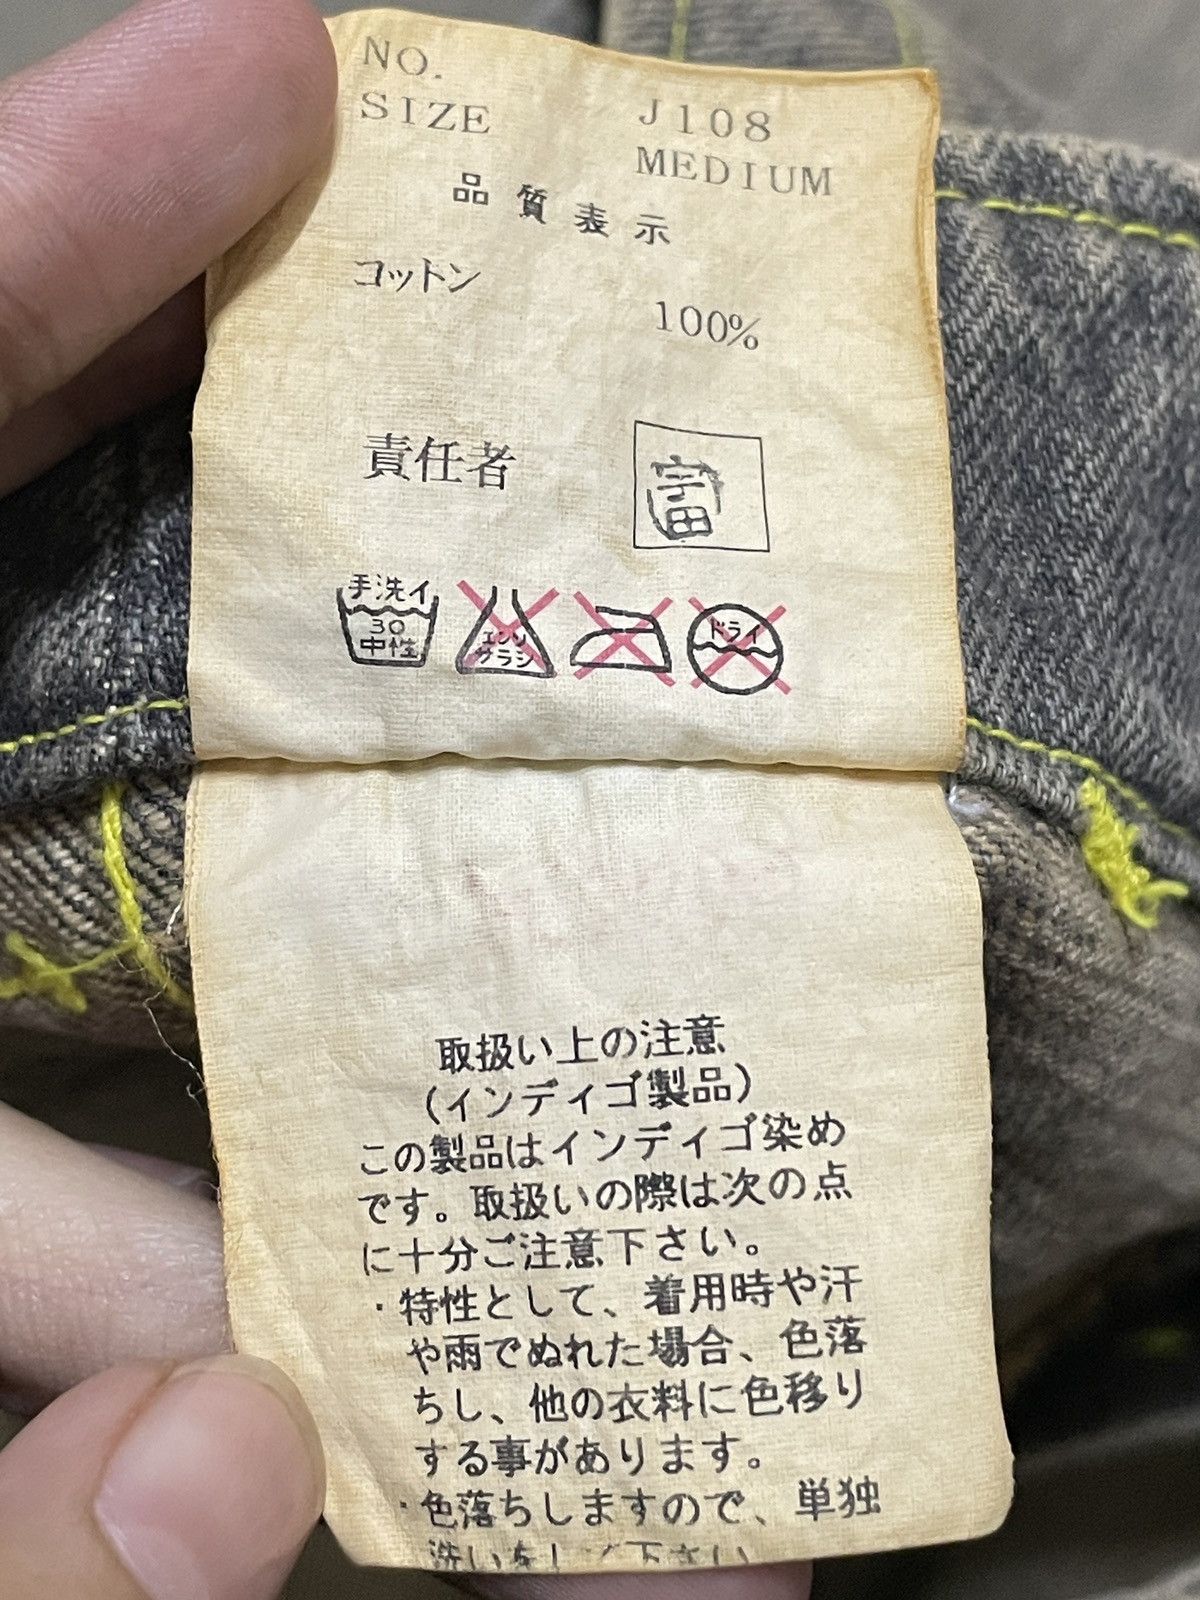 NO.
J108
SIZE
MEDIUM
品質表示
コットン
100%
責任者
宇田
手洗イ
30
中性
エンソ
サラシ
ドライ
取扱い上の注意
(インディゴ製品)
この製品はインディゴ染め
です。取扱いの際は次の点
に十分ご注意下さい。
・特性として、着用時や汗
や雨でぬれた場合、色落
ちし、他の衣料に色移り
する事があります。
・色落ちしますので、単独
洗いをして下さい